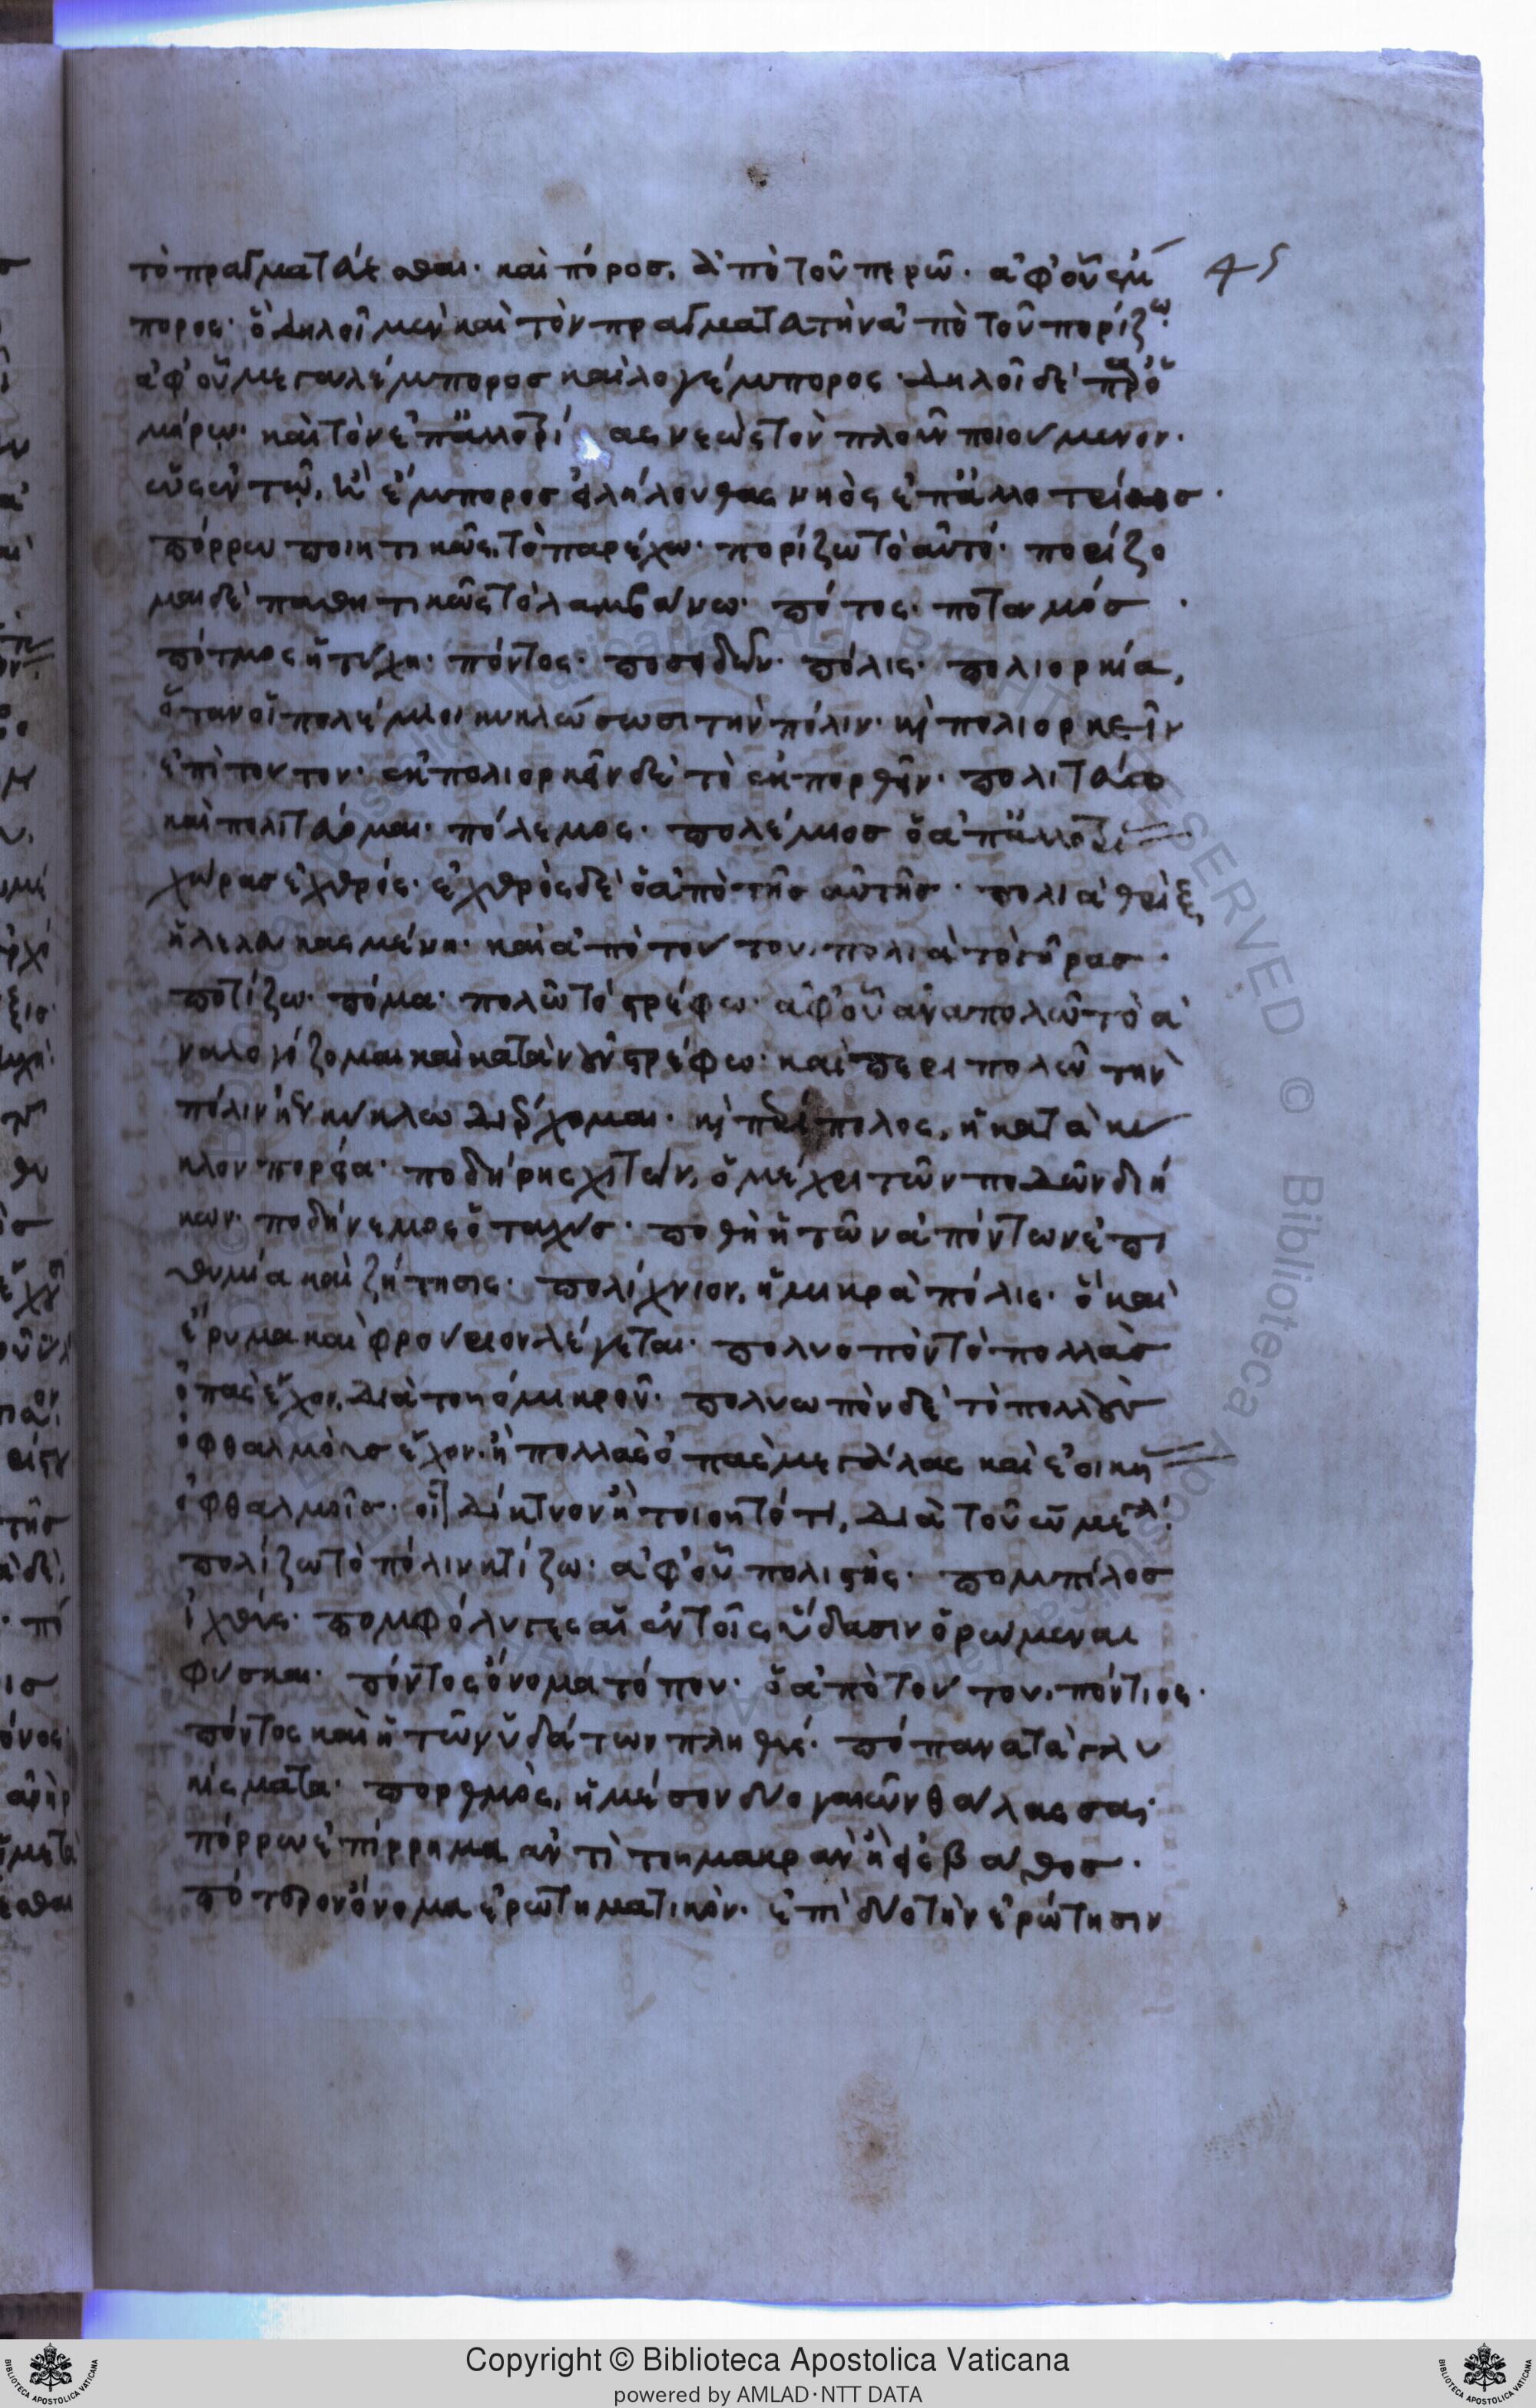 τὸ πραγματεύεσθαι· καὶ πόρος, ἀπὸ τοῦ περῶ· ἀφ' οὗ ἔμ
45
πορος· ὃ δηλοῖ μὲν καὶ τὸν πραγματευτὴν ἀπὸ τοῦ πορίζω·
ἀφ' οὗ μεγαλέμπορος καὶ λογέμπορος· δηλοῖ δὲ παρ' ὁ
μήρῳ· καὶ τὸν ἐπ' ἀλλοτρίας νεὼς τὸν πλοῦν ποιούμενον·
ἔμπορος εἰλήλουθας νηὸς ἐπ' ἀλλοτρίας·
πόρρω ποιητικῶς, τὸ παρέχω· πορίζω τὸ αὐτό· πορίζο
μαι δὲ παθητικῶς τὸ λαμβάνω· πότος· ποταμός·
πότμος ἡ τύχη· πόντος· ποσειδῶν· πόλις· πολιορκία,
ὅταν οἱ πολέμιοι κυκλώσωσι τὴν πόλιν· καὶ πολιορκεῖν
ἐπὶ τούτου· ἐκπολιορκεῖν δὲ τὸ ἐκπορθεῖν· πολιτεύω
καὶ πολιτεύομαι· πόλεμος· πολέμιος ὁ ἀπ' ἄλλοτρι
χώρας ἐχθρός· ἐχθρὸς δὲ ὁ ἀπὸ τῆς αὐτῆς· πολιὰ θρὶξ,
ἡ λελευκασμένη· καὶ ἀπὸ τούτου, πολιὰ τὸ γῆρας·
ποτίζω· πόμα· πολῶ τὸ στρέφω· ἀφ' οὗ ἀναπολῶ τὸ ἀ
ναλογίζομαι καὶ κατὰ νοῦν στρέφω· καὶ περιπολῶ τὴν
πόλιν ἤγουν κύκλῳ διέρχομαι· καὶ περίπολος, ἡ κατὰ κύ
κλον πορεία· ποδήρης χιτών, ὁ μέχρι τῶν ποδῶν διή
κων· ποδήνεμος ὁ ταχύς· ποθὴ ἡ τῶν ἀπόντων ἐπι
θυμία καὶ ζήτησις· πολίχνιον, ἡ μικρὰ πόλις· ὃ καὶ
ἔρυμα καὶ φρούριον λέγεται· πολυοπὸν τὸ πολλὰς
ὀπὰς ἔχον, διὰ τοῦ ο μικροῦ· πολυωπὸν δὲ τὸ πολλοὺς
ὀφθαλμοὺς ἔχον· ἢ πολλὰς ὀπὰς μεγάλας καὶ ἐοικυ
ὀφθαλμοῖς· δίκτυον ἢ τοιοῦτό τι, διὰ τοῦ ω μεγάλου·
πολίζω τὸ πόλιν κτίζω· ἀφ' οὗ πολιστής· πομπίλος
ἰχθύς· πομφόλυγες αἱ ἐν τοῖς ὕδασιν ὁρώμεναι
φύσκαι· πόντος ὄνομα τόπου· ὁ ἀπὸ τούτου, πόντιος·
πόντος καὶ ἡ τῶν ὑδάτων πληθύς· πόπανα τὰ γλυ
κίσματα· πορθμὸς, ἡ μέσον δύο γαιῶν θάλασσα·
πόρρω ἐπίρρημα ἀντὶ τοῦ μακρὰν ἢ εἰς βάθος·
πότερον ὄνομα ἐρωτηματικόν· ἐπὶ δύο τὴν ἐρώτησιν
Copyright © Biblioteca Apostolica Vaticana
powered by AMLAD·NTT DATA